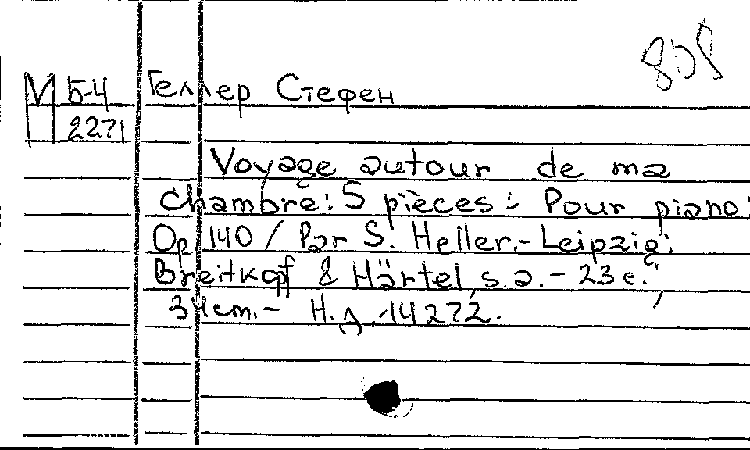 808
М Б-4 Геллер Стефен
2271
Voyage autour de ma
chambre: 5 pièces: Pour piano:
Op. 140 / Par S. Heller.-Leipzig:
Breitkopf & Härtel, s.a.- 23 c.;
34 cm.- Н.д. 14272.